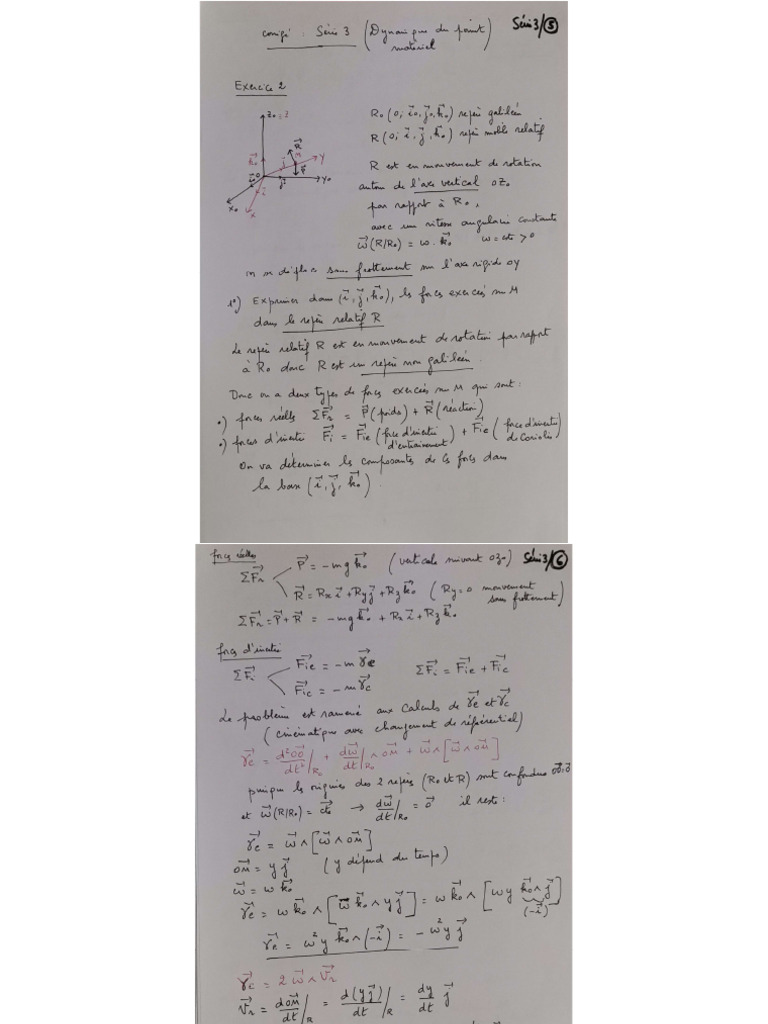 corrigé : Série 3 (Dynamique du point matériel)
Série 3/5
Exercice 2
Z₀ ≡ Z
R⃗
M
y
k⃗₀
j⃗
P⃗
O
i⃗
y₀
x₀
x
R₀ (O, i⃗₀, j⃗₀, k⃗₀) repère galiléen
R (O, i⃗, j⃗, k⃗₀) repère mobile relatif
R est en mouvement de rotation
autour de l'axe vertical OZ₀
par rapport à R₀,
avec une vitesse angulaire constante
ω⃗(R/R₀) = ω.k⃗₀ ω = cte > 0
M se déplace sans frottement sur l'axe rigide OY
1°) Exprimer dans (i⃗, j⃗, k⃗₀), les forces exercées sur M
dans le repère relatif R
Le repère relatif R est en mouvement de rotation par rapport
à R₀ donc R est un repère non galiléen.
Donc on a deux types de forces exercées sur M qui sont :
•) forces réelles ΣF⃗r = P⃗ (poids) + R⃗ (réaction)
•) forces d'inertie F⃗i = F⃗ie (force d'inertie d'entraînement) + F⃗ie (force d'inertie de Coriolis)
On va déterminer les composantes de ces forces dans
la base (i⃗, j⃗, k⃗₀).
forces réelles
Série 3/6
ΣF⃗r
P⃗ = -mg k⃗₀ (verticale suivant OZ₀)
R⃗ = Rx i⃗ + Ry j⃗ + Rz k⃗₀ (Ry = 0 mouvement sans frottement)
ΣF⃗r = P⃗ + R⃗ = -mg k⃗₀ + Rx i⃗ + Rz k⃗₀
forces d'inertie
ΣF⃗i
F⃗ie = -m γ⃗e
F⃗ic = -m γ⃗c
ΣF⃗i = F⃗ie + F⃗ic
Le problème est ramené aux calculs de γ⃗e et γ⃗c
(cinématique avec changement de référentiel)
γ⃗e = d²OO⃗/dt² /R₀ + dω⃗/dt /R₀ ∧ OM⃗ + ω⃗ ∧ [ω⃗ ∧ OM⃗]
puisque les origines des 2 repères (R₀ et R) sont confondues OO⃗ = 0⃗
et ω⃗(R/R₀) = cte → dω⃗/dt /R₀ = 0⃗ il reste :
γ⃗e = ω⃗ ∧ [ω⃗ ∧ OM⃗]
OM⃗ = y j⃗ (y dépend du temps)
ω⃗ = ω k⃗₀
γ⃗e = ω k⃗₀ ∧ [ω k⃗₀ ∧ y j⃗] = ω k⃗₀ ∧ [ω y k⃗₀ ∧ j⃗]
(-i⃗)
γ⃗e = ω² y k⃗₀ ∧ (-i⃗) = -ω² y j⃗
γ⃗c = 2 ω⃗ ∧ V⃗r
V⃗r = dOM⃗/dt /R = d(y j⃗)/dt /R = dy/dt j⃗